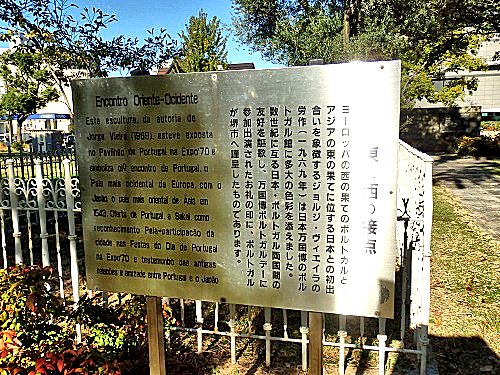 Encontro Oriente-Ocidente
Esta escultura, da autoria de
Jorge Vieira (1969), esteve exposta
no Pavilhão de Portugal na Expo'70 e
simboliza o encontro de Portugal, o
País mais ocidental da Europa, com o
Japão, o país mais oriental da Ásia em
1543. Oferta de Portugal a Sakai como
reconhecimento pela participação da
cidade nas Festas do Dia de Portugal
na Expo'70 e testemunho das antigas
relações e amizade entre Portugal e o Japão
東・西の接点
ヨーロッパの西の果てのポルトガルと
アジアの東の果てに位する日本との初出
合いを象徴するジョルジ・ヴィエイラの
労作(一九六九年)は日本万国博のポル
トガル館に多大の色彩を添えました。
数世紀に亙る日本・ポルトガル両国間の
友好を駆歌し、万国博ポルトガルデーに
参加出演されたお礼の印に、ポルトガル
が堺市へ謹呈したものであります。